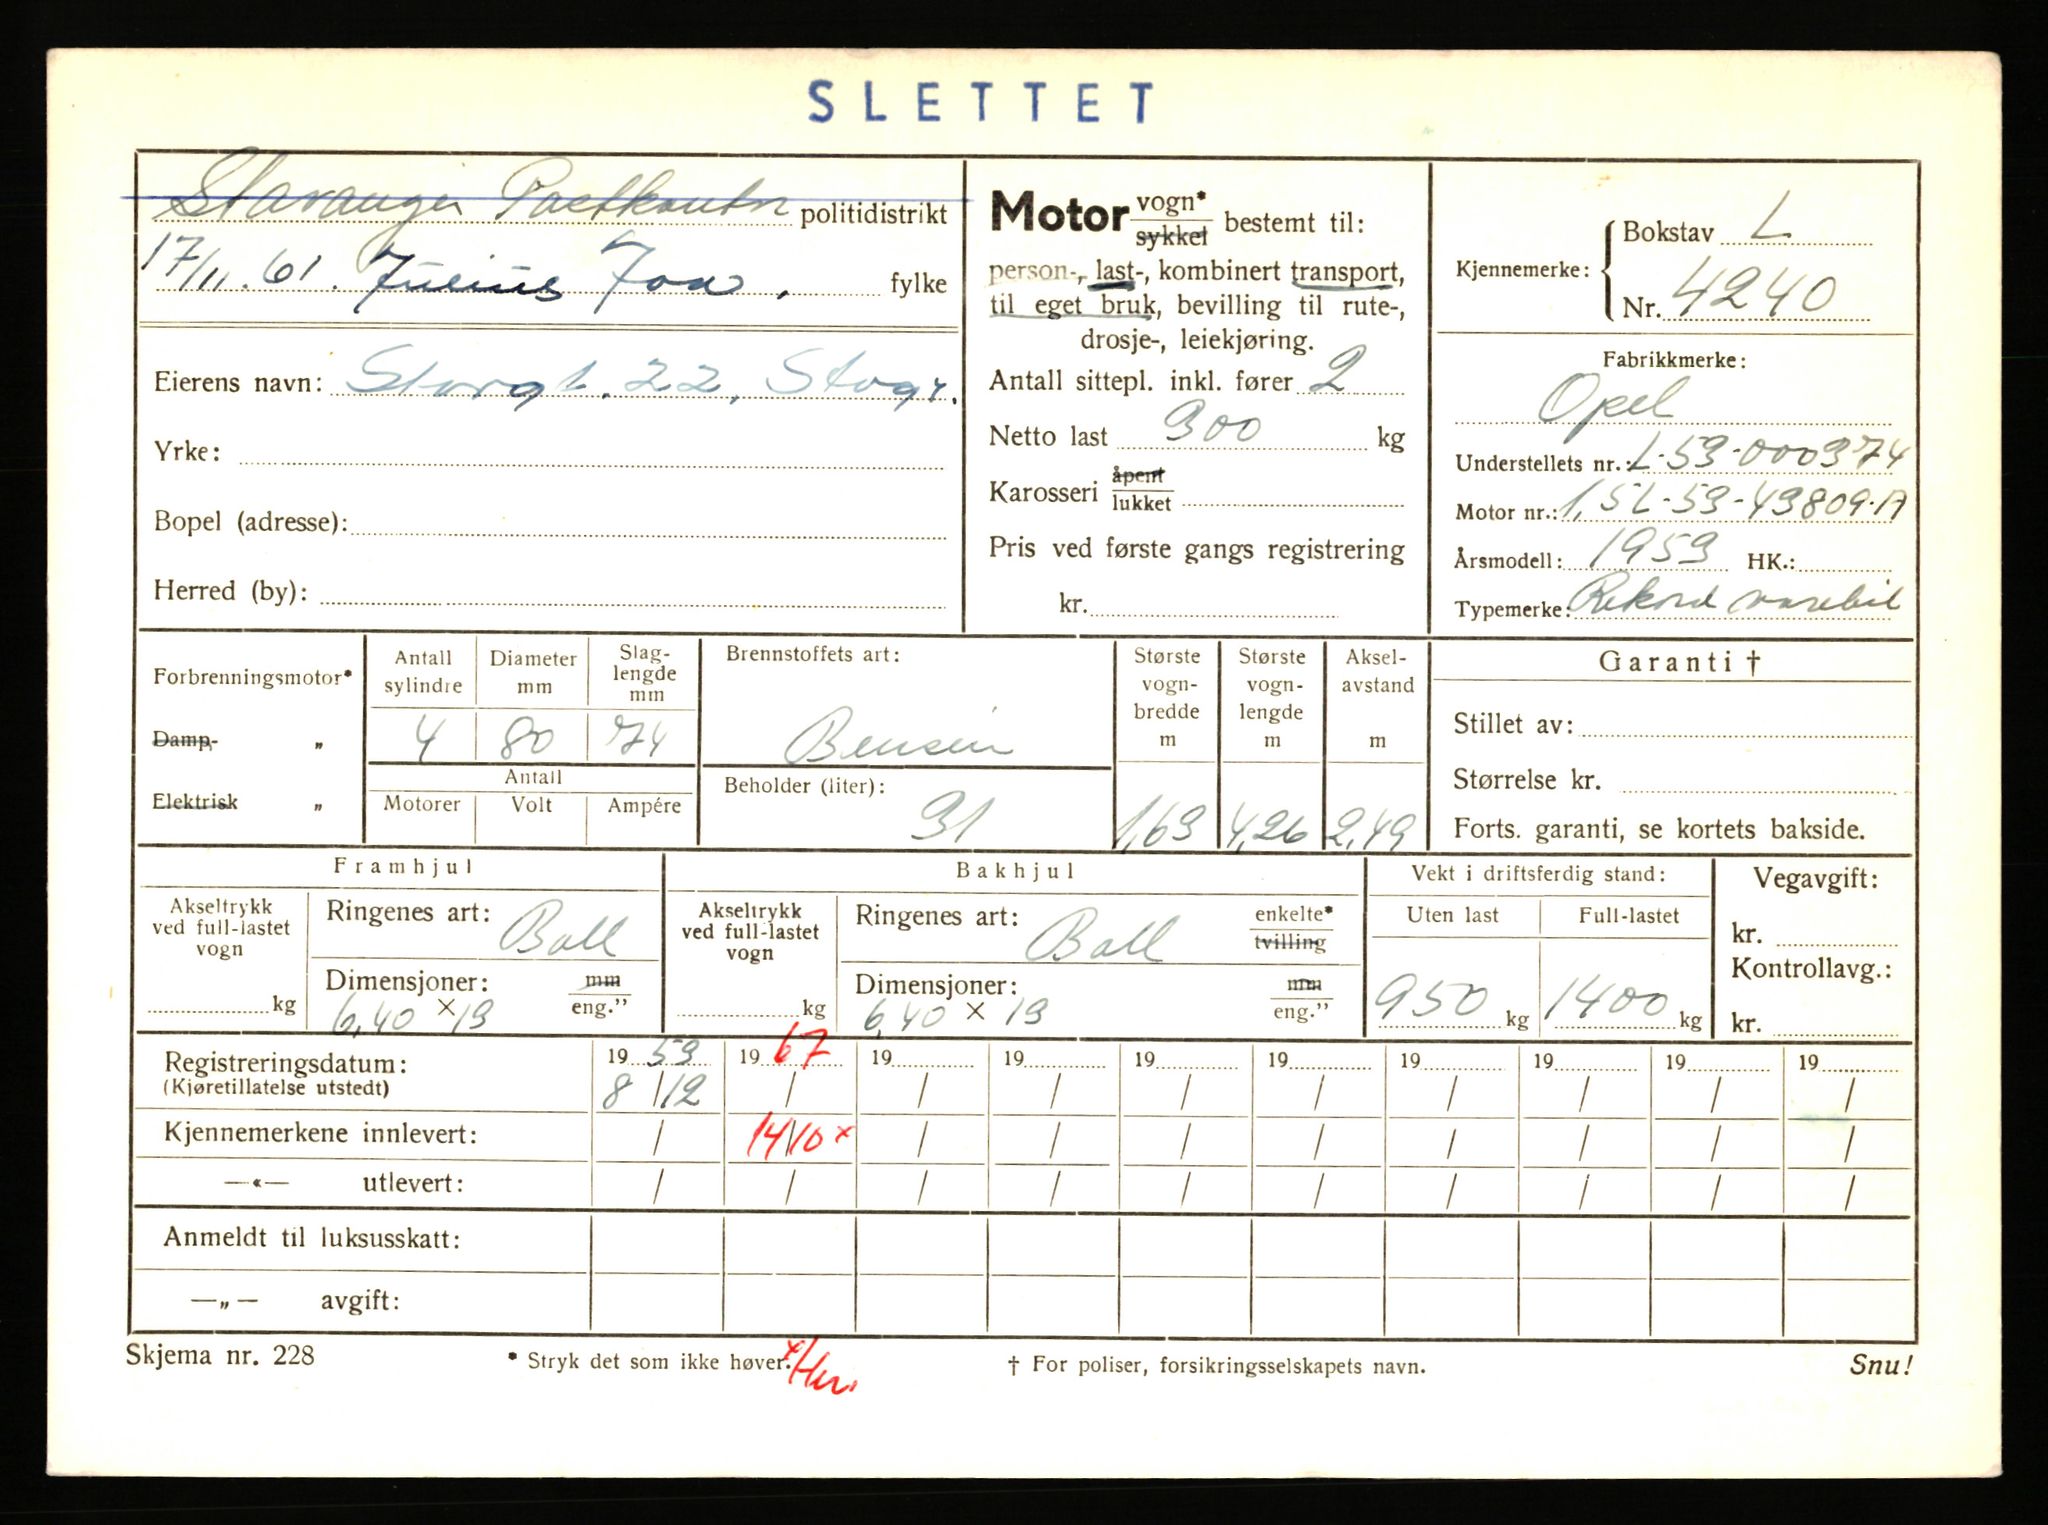 SLETTET
Stavanger Postkontor politidistrikt
17/11.61. Julius Joa, fylke
Eierens navn: Storgt. 22, Stvgr.
Yrke:
Bopel (adresse):
Herred (by):
Motor vogn* sykkel bestemt til:
person-, last-, kombinert transport,
til eget bruk, bevilling til rute-,
drosje-, leiekjøring.
Antall sittepl. inkl. fører 2
Netto last 300 kg
Karosseri åpent lukket
Pris ved første gangs registrering
kr.
Kjennemerke: Bokstav L
Nr. 4240
Fabrikkmerke:
Opel
Understellets nr.: L-53-000374
Motor nr.: 1,5L-53-43809-A
Årsmodell: 1953 HK.:
Typemerke: Rekord varebil
Forbrenningsmotor*
Damp- „
Elektrisk „
Antall sylindre Diameter mm Slag-lengde mm
4 80 74
Antall
Motorer Volt Ampére
Brennstoffets art:
Bensin
Beholder (liter):
31
Største vogn-bredde m
1,63
Største vogn-lengde m
4,26
Aksel-avstand m
2,49
Garanti †
Stillet av:
Størrelse kr.
Forts. garanti, se kortets bakside.
Framhjul
Akseltrykk ved full-lastet vogn
kg
Ringenes art: Ball
Dimensjoner: mm eng."
6,40 × 13
Bakhjul
Akseltrykk ved full-lastet vogn
kg
Ringenes art: Ball enkelte* tvilling
Dimensjoner: mm eng."
6,40 × 13
Vekt i driftsferdig stand:
Uten last Full-lastet
950 kg 1400 kg
Vegavgift:
kr.
Kontrollavg.:
kr.
Registreringsdatum: 19 53 19 67 19 19 19 19 19 19 19 19
(Kjøretillatelse utstedt) 8/12 / / / / / / / / /
Kjennemerkene innlevert: / 14/10 x / / / / / / / /
—«— utlevert: / / / / / / / / / /
Anmeldt til luksusskatt:
—„— avgift:
Skjema nr. 228
* Stryk det som ikke høver.
† For poliser, forsikringsselskapets navn.
Snu!